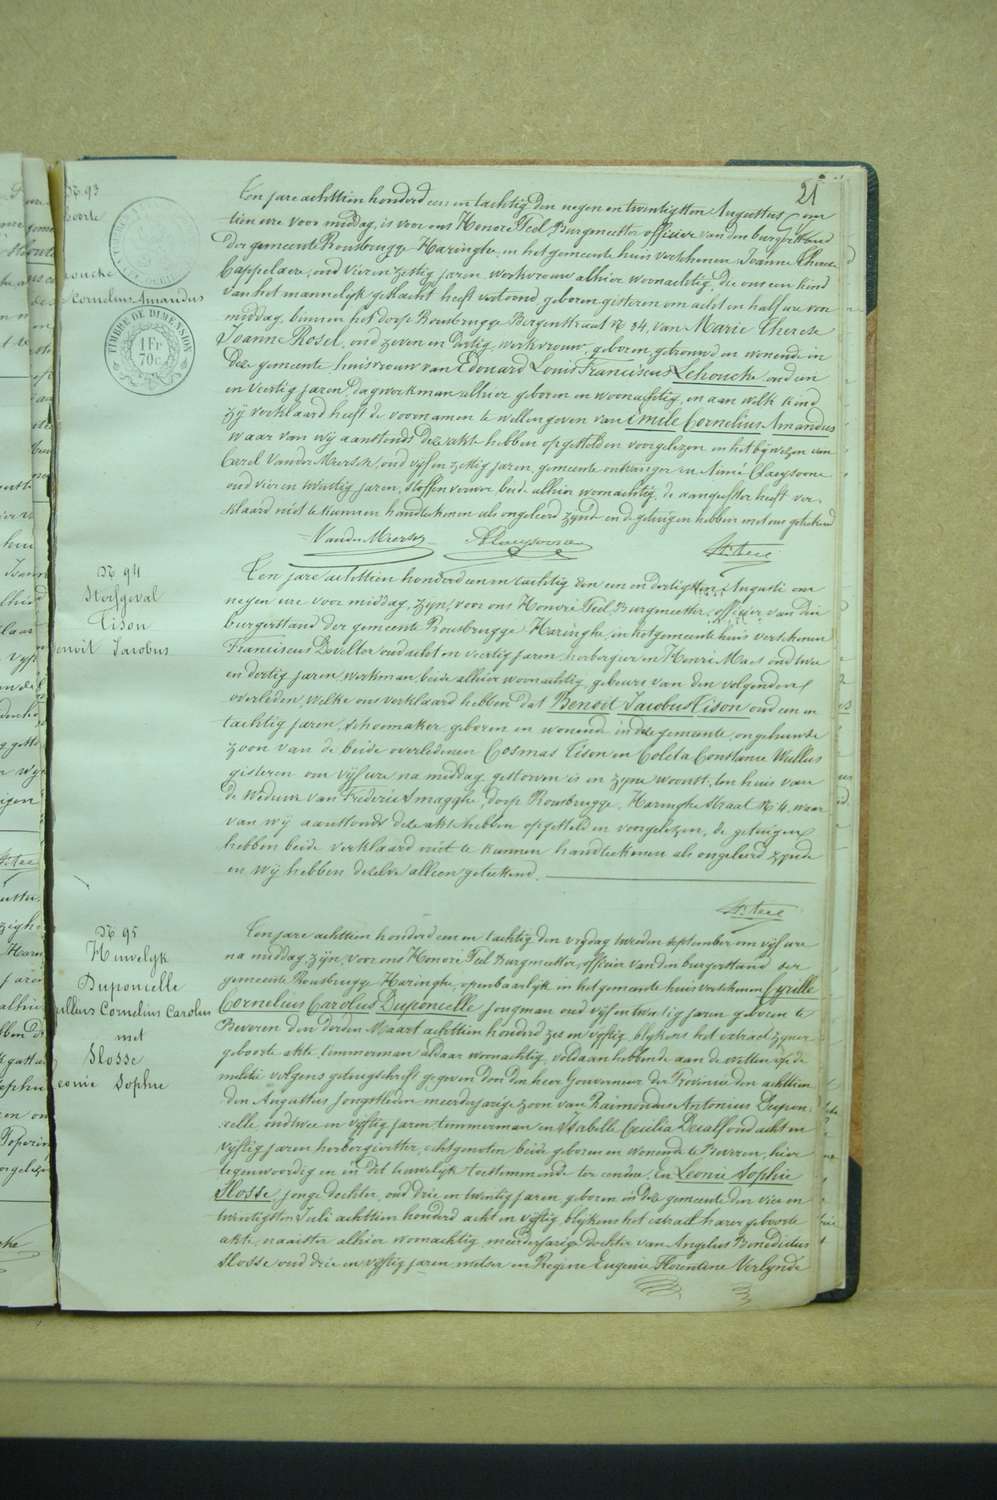 21
N. 93
Cornelius Amandus
TIMBRE DE DIMENSION
1 Fr
70c
Ten jare achttien honderd een en tachtig den negen en twintigsten Augustus om
tien ure voor middag, is voor ons Honoré Teel Burgmeester officier van den burgerstand
der gemeente Rousbrugge Haringhe, en in het gemeente huis verschenen Joanna
Cappelaere, oud vier en zestig jaren werkvrouw alhier woonachtig, die ons een kind
van het mannelyk geslacht heeft vertoond, geboren gisteren om acht en half ure voor
middag, binnen het dorp Rousbrugge Bergenstraat N 34, van Marie Therese
Joanne Rosel, oud zeven en dertig, werkvrouw, geboren getrouwd en wonende in
deze gemeente huisvrouw van Edouard Louis Franciscus Lehoucke oud een
en veertig jaren, dagwerkman alhier geboren en woonachtig, en aan welk kind
zy verklaard heeft de voornamen te willen geven van Emile Cornelius Amandus
waar van wy aanstonds deze akte hebben opgesteld en voorgelezen en het bywezen van
Carel Vander Meersch, oud vyf en zestig jaren, gemeente ontvanger en Aimé Claeysoone
oud vier en twintig jaren, stoffenverwer beide alhier woonachtig, de aangeefster heeft ver-
klaard niet te kunnen handteekenen als ongeleerd zynde en de getuigen hebben met ons geteekend
VanderMeersch
A Claeysoone
H. Teel
N. 94
Sterfgeval
Tison
Benoit Jacobus
Ten jare achttien honderd een en tachtig den een en dertigsten Augusti om
negen ure voor middag, zyn, voor ons Honoré Teel Burgmeester, officier van den
burgerstand der gemeente Rousbrugge Haringhe, in het gemeente huis verschenen
Franciscus Develter oud acht en veertig jaren, herbergier en Henri Maes oud twee
en dertig jaren, werkman, beide alhier woonachtig, gebeurs van den volgenden
overleden, welke ons verklaard hebben dat Benoit Jacobus Tison oud een en
tachtig jaren, schoemaker, geboren en wonende in deze gemeente, ongehuwde
zoon van de beide overledenen Cosmas Tison en Coleta Constance Wullus
gisteren om vyf ure na middag gestorven is en zyne woonst, ten huis van
de Weduwe van Frederic Smagghe, dorp Rousbrugge, Haringhe straat N 4, waar
van wy aanstonds deze akte hebben opgesteld en voorgelezen, de getuigen
hebben beide verklaard niet te kunnen handteekenen als ongeleerd zynde
en wy hebben dezelve alleen geteekend.
H. Teel
N. 95
Huwelyk
Duponselle
Cornelius Carolus
met
Slosse
Leonie Sophie
Ten jare achttien honderd een en tachtig den vrydag tweeden september om vyf ure
na middag, zyn, voor ons Honoré Teel Burgmeester, officier van den burgerstand der
gemeente Rousbrugge Haringhe, openbaarlyk in het gemeente huis verschenen Cyrille
Cornelius Carolus Duponselle jongman oud vyf en twintig jaren geboren te
Beveren den derden Maart achttien honderd zes en vyftig blykens het extract zyner
geboorte akte, timmerman aldaar woonachtig, voldaan hebbende aan de wetten op de
militie volgens getuigschrift gegeven door den heer Gouverneur der Provincie den achttien
den Augustus jongstleden meerderjarige zoon van Raimondus Antonius Dupon-
selle oud twee en vyftig jaren timmerman en Isabelle Cecilia Decalf oud acht en
vyftig jaren herbergierster, echtgenoten beide geboren en wonende te Beveren, hier
tegenwoordig en in dit huwelyk toestemmende ter eendre, En Leonie Sophie
Slosse, jonge dochter, oud drie en twintig jaren, geboren in deze gemeente den vier en
twintigsten Juli achttien honderd acht en vyftig blykens het extract harer geboorte
akte, naaister alhier woonachtig meerderjarige dochter van Angelus Benedictus
Slosse oud drie en vyftig jaren, metser en Regine Eugenie Florentine Verlynde